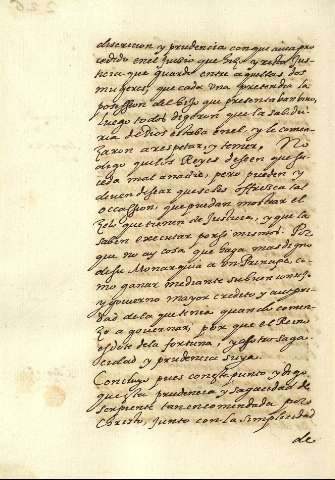 discrecion y prudencia con que avia pro
cedido en el juisio que hizo y recta jus
ticia que guardo entre aquellas dos
mugeres, que cada una pretendia la
posession del hijo que presentaron vivo,
luego todos digeron que la sabidu
ria de Dios estaba en el, y le comen
zaron a respetar, y temer. No
digo que los Reyes deseen que su
ceda mal a nadie, pero pueden y
deven desear que se les offresca tal
occassion, que puedan mostrar el
zelo que tienen de Justicia, y que la
saben executar por si mismos. Por
que no ay cosa que haga mas digno
de su Monarquia a un Principe, co
mo ganar mediante su buen consejo
y govierno mayor credito y autori
dad de la que tenia quando comen
zo a governar, por que el Reino
es dote de la fortuna, y estotro saga
cidad y prudencia suya.
Concluyo pues con este punto, y digo
que esta prudencia y sagacidad de
serpiente tan encomendada por
Christo, junto con la simplicidad
de